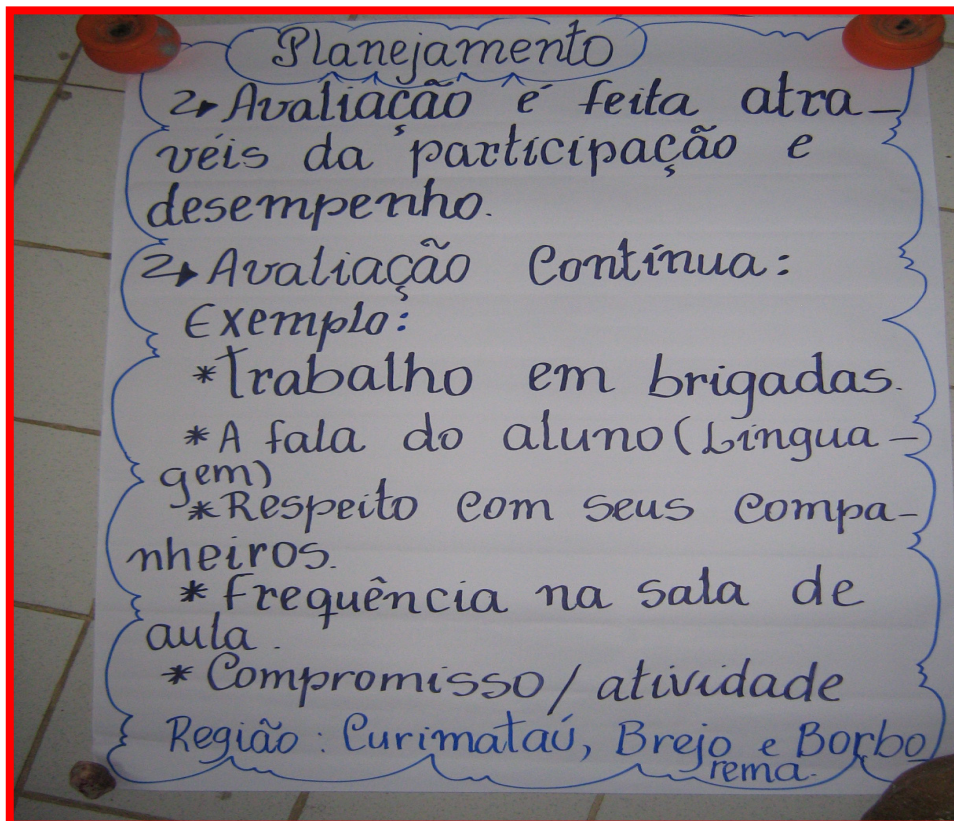 Planejamento
2➧ Avaliação é feita atra-
véis da participação e
desempenho.
2➧ Avaliação Contínua:
Exemplo:
*Trabalho em brigadas.
*A fala do aluno (Lingua-
gem)
*Respeito com seus compa-
nheiros.
*frequência na sala de
aula.
*Compromisso/atividade
Região: Curimataú, Brejo e Borbo
rema.